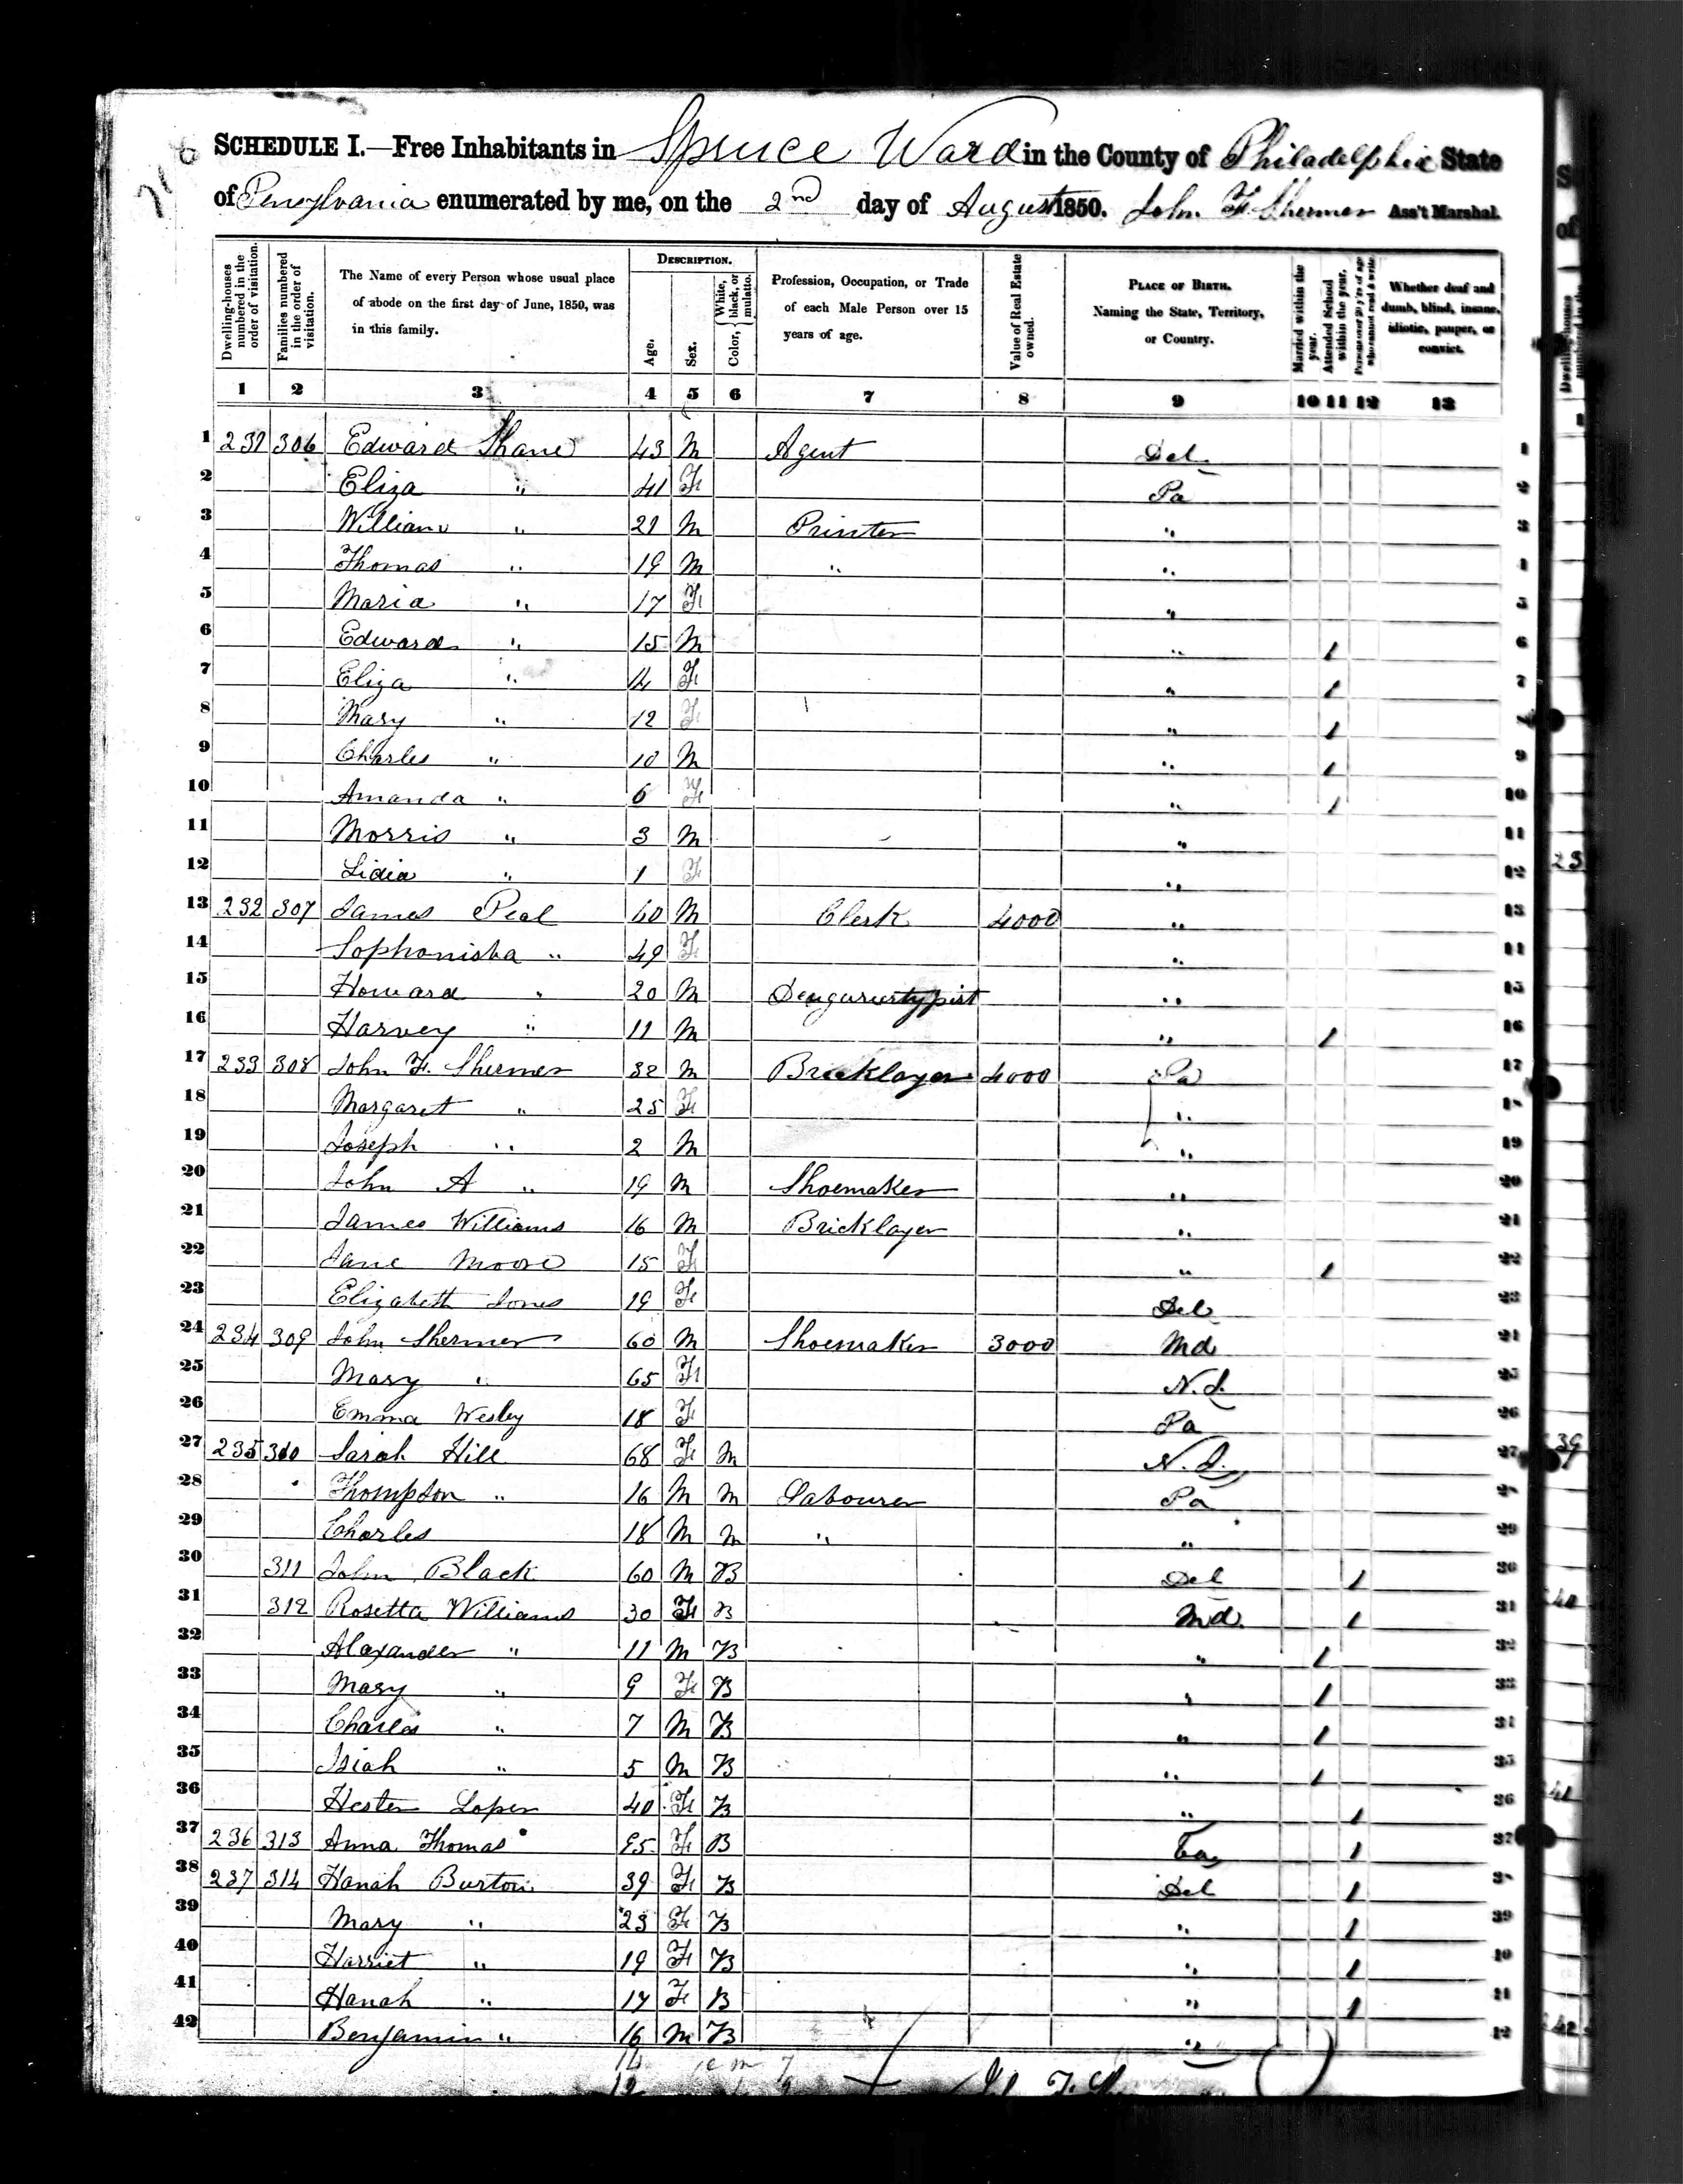 SCHEDULE I.—Free Inhabitants in Spruce Ward in the County of Philadelphia State
of Pensylvania enumerated by me, on the 2nd day of August 1850. John F. Shermer Ass't Marshal.
Dwelling-houses numbered in the order of visitation.
Families numbered in the order of visitation.
The Name of every Person whose usual place of abode on the first day of June, 1850, was in this family.
DESCRIPTION.
Age.
Sex.
Color, { White, black, or mulatto.
Profession, Occupation, or Trade of each Male Person over 15 years of age.
Value of Real Estate owned.
PLACE OF BIRTH. Naming the State, Territory, or Country.
Married within the year.
Attended School within the year.
Persons over 20 y'rs of age who cannot read & write.
Whether deaf and dumb, blind, insane, idiotic, pauper, or convict.
1 2 3 4 5 6 7 8 9 10 11 12 13
1 231 306 Edward Shane 43 M Agent Del 1
2 Eliza " 41 F Pa 2
3 William " 21 M Printer " 3
4 Thomas " 19 M " " 4
5 Maria " 17 F " 5
6 Edward " 15 M " 1 6
7 Eliza " 14 F " 1 7
8 Mary " 12 F " 1
9 Charles " 10 M " 1 9
10 Amanda " 6 F " 1 10
11 Morris " 3 M " 11
12 Lidia " 1 F " 12
13 232 307 James Peal 60 M Clerk 4000 " 13
14 Sophonisba " 49 F " 14
15 Howard " 20 M " 15
16 Harvey " 11 M " 1 16
17 233 308 John F. Shermer 32 M Bricklayer 4000 Pa 17
18 Margaret " 25 F " 18
19 Joseph " 2 M " 19
20 John A " 19 M Shoemaker " 20
21 James Williams 16 M Bricklayer " 21
22 Jane Moore 15 F " 1 22
23 Elizabeth Jones 19 F Del 23
24 234 309 John Shermer 60 M Shoemaker 3000 Md 24
25 Mary " 65 F N.J. 25
26 Emma Wesley 18 F Pa 26
27 235 310 Sarah Hill 68 F M N.J. 27
28 Thompson " 16 M M Labourer Pa 28
29 Charles 18 M M " " 29
30 311 John Black 60 M B Del 1 30
31 312 Rosetta Williams 30 F B Md. 1 31
32 Alexander " 11 M B " 1 32
33 Mary " 9 F B " 1 33
34 Charles " 7 M B " 1 34
35 Isiah " 5 M B " 1 35
36 Hester Loper 40 F B " 1 36
37 236 313 Anna Thomas 95 F B 1 37
38 237 314 Hanah Burton 39 F B Del 1 38
39 Mary " 23 F B " 1 39
40 Harriet " 19 F B " 1 40
41 Hanah " 17 F B " 1 41
42 Benjamin " 16 M B " 42